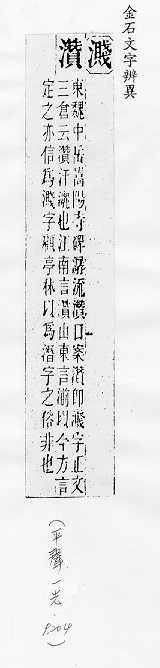 金石文字辨異
濺
灒
東魏中岳嵩陽寺碑 流灒口案灒即濺字正文
三倉云灒汙灑也江南言灒山東言湔以今方言
定之亦信爲濺字顧亭林以爲潛字之俗非也
(平聲一先 P.204)